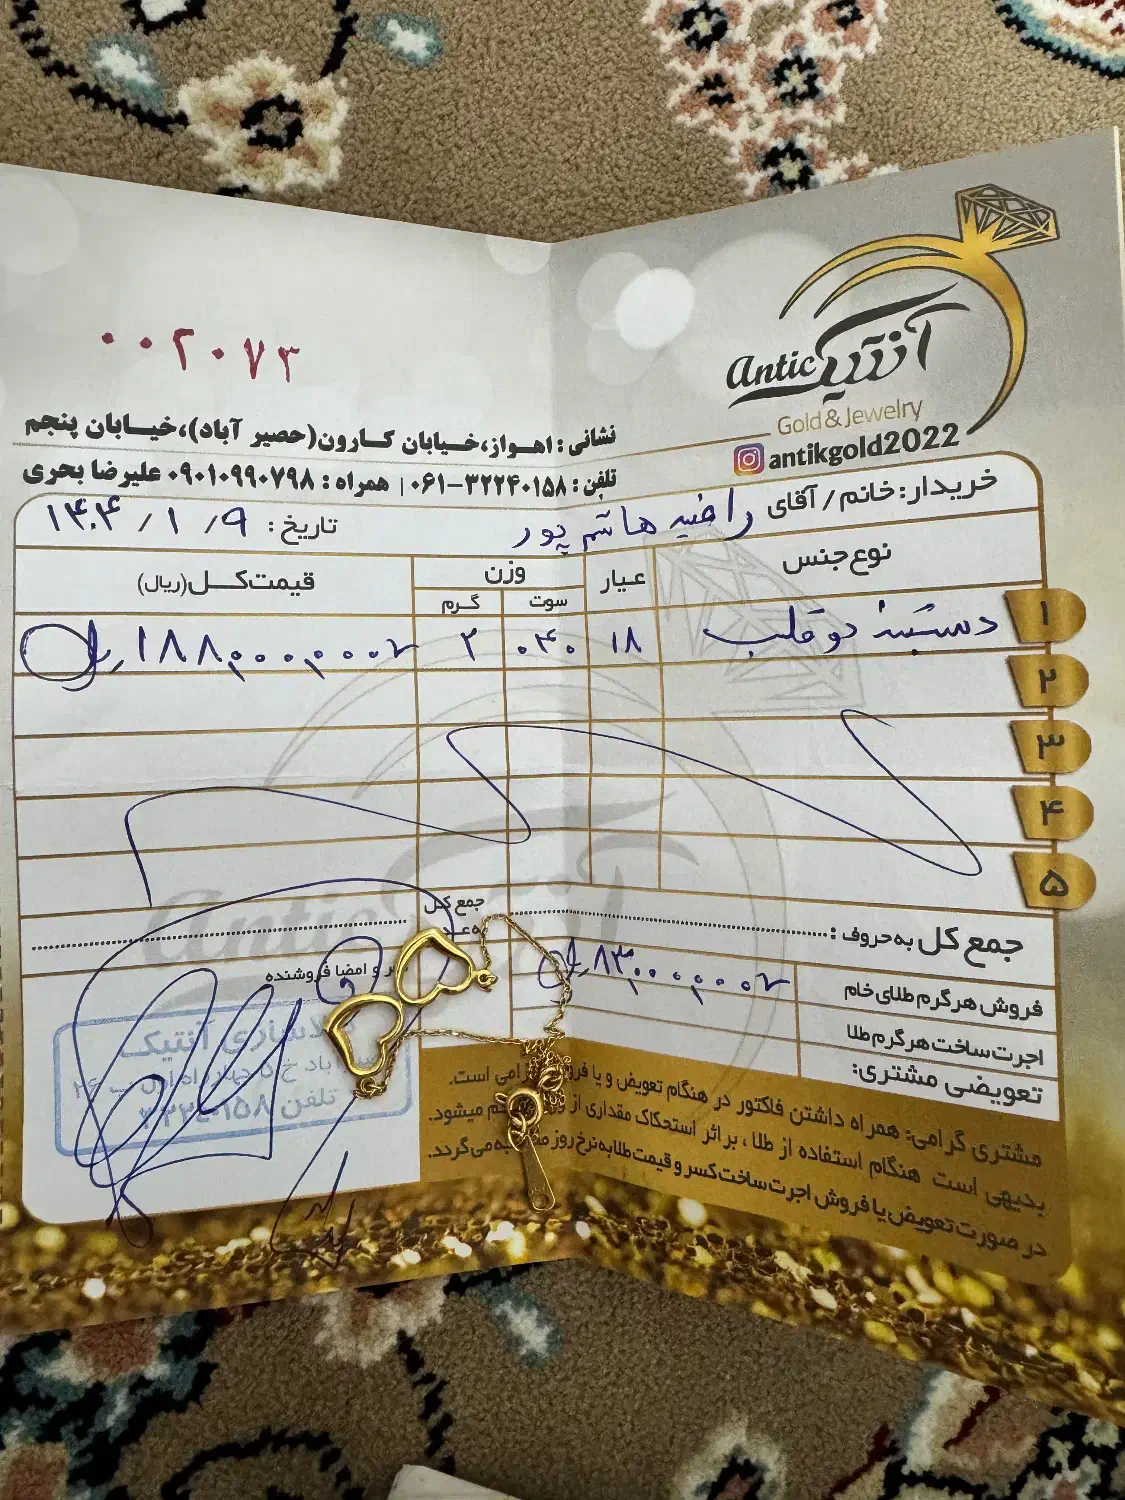 آنتیک
Antic
Gold & Jewelry
antikgold2022
۰۰۲۰۷۳
نشانی : اهـواز،خـیابان کـارون(حصیر آباد)،خیـابان پنجم
تلفن : ۳۲۲۴۰۱۵۸-۰۶۱ | همراه : ۰۹۰۱۰۹۹۰۷۹۸ علیرضا بحری
خریدار: خانم / آقای راضیه هاشم پور
تاریخ : ۱۴۰۴/۱/۹
نوع جنس عیار وزن قیمت کـل(ریال)
سوت گـرم
۱ دستبند دو قلب ۱۸ ۰۴۰ ۲ ۱۸۸,۰۰۰,۰۰۰
۲
۳
۴
۵
جمع کل به حروف :
جمع کل
فروش هر گرم طلای خام
اجرت ساخت هر گرم طلا
تعویضی مشتری:
و امضا فروشنده
مشتری گرامی: همراه داشتن فاکتور در هنگام تعویض و یا است.
بدیهی است هنگام استفاده از طلا ، بر اثر استحکاک مقداری از میشود.
در صورت تعویض یا فروش اجرت ساخت کسر و قیمت طلا به نرخ روز می گردد.
آنتیک
تلفن